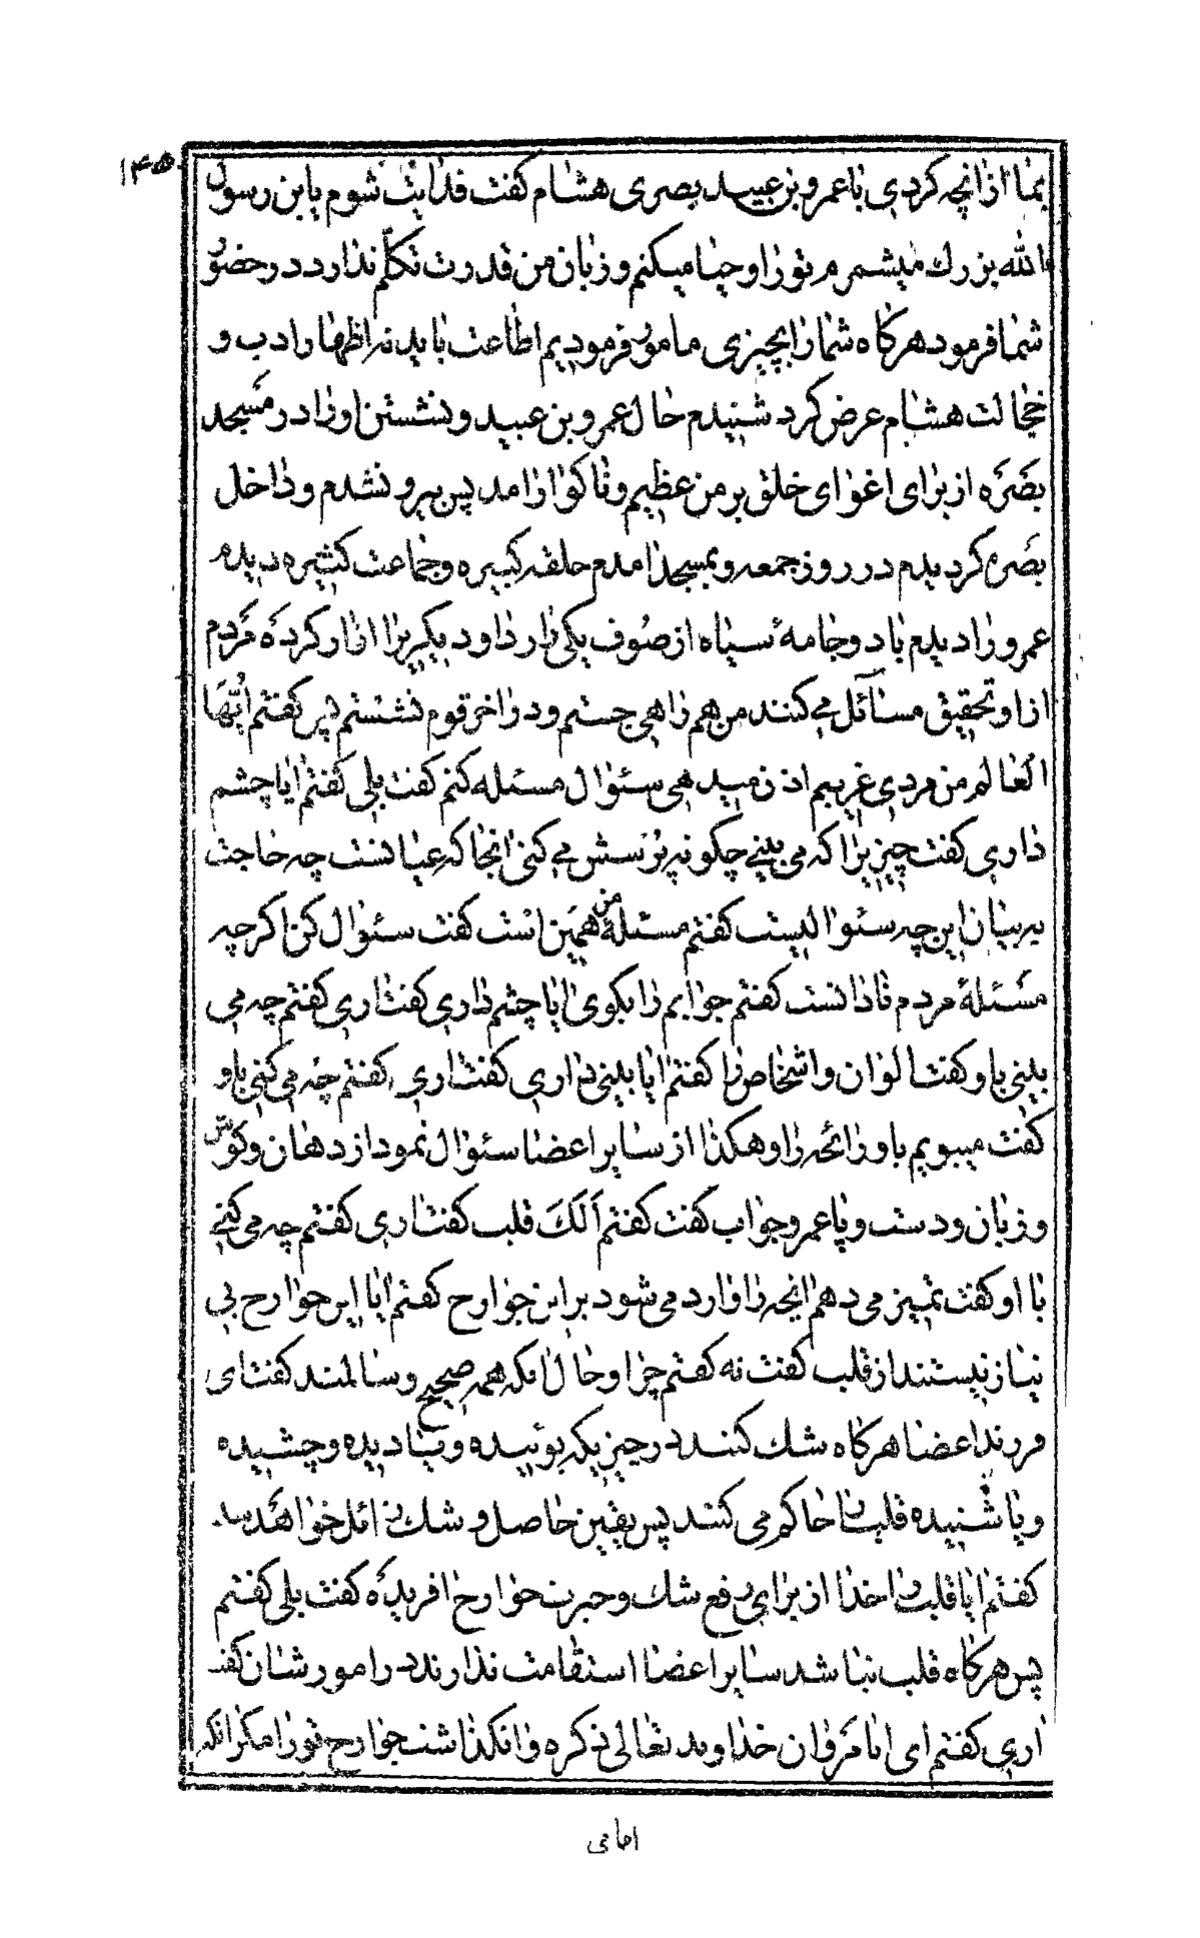 ۱۴۵
بما از انچه کردی با عمرو بن عبید بصری هشام کفت فدایت شوم یابن رسول
الله بزرك میشمرم تو را و حیا میکنم و زبان من قدرت تکلم ندارد در حضور
شما فرمود هرکاه شما را بچیزی مامور فرمودیم اطاعت باید نه اظهار ادب و
خجالت هشام عرض کرد شنیدم حال عمرو بن عبید و نشستن او را در مسجد
بصره از برای اغوای خلق بر من عظیم و ناکوار امد پس بیرو نشدم و داخل
بصره کردیدم در روز جمعه و بمسجد امدم حلقه کبیره و جماعت کثیره دیدم
عمرو را دیدم با دو جامهٔ سیاه از صوف یکی را ردا و دیکریرا ازار کرده مردم
از او تحقیق مسائل می کنند من هم راهی جستم و در اخر قوم نشستم پس کفتم ایها
العالم من مردی غریبم اذن میدهی سئوال مسئله کنم کفت بلی کفتم ایا چشم
داری کفت چیزیرا که می بینی چکونه پرسش می کنی انجا که عیانست چه حاجت
به بیان این چه سئوالیست کفتم مسئلهٔ من همین است کفت سئوال کن اکرچه
مسئلهٔ مردم نادانست کفتم جوابم را بکوی ایا چشم داری کفت اری کفتم چه می
بینی باو کفت الوان و اشخاص را کفتم ایا بینی داری کفت اری کفتم چه می کنی باو
کفت میبویم باو رائحه را و هکذا از سایر اعضا سئوال نمود از دهان و کوش
و زبان و دست و پا عمرو جواب کفت کفتم اَلَكَ قلب کفت اری کفتم چه می کنی
با او کفت تمییز می دهم انچه را وارد می شود بر این جوارح کفتم ایا این جوارح بی
نیاز نیستند از قلب کفت نه کفتم چرا و حال انکه همه صحیح و سالمند کفت ای
فرزند اعضا هرکاه شك کنند در چیزیکه بوئیده و یا دیده و چشیده
و یا شنیده قلب را حاکم می کنند پس یقین حاصل و شك زائل خواهد شد
کفتم ایا قلب را خدا از برای رفع شك و حیرت جوارح افریده کفت بلی کفتم
پس هرکاه قلب نباشد سایر اعضا استقامت ندارند در امورشان کفت
اری کفتم ای ابا مروان خداوند تعالی ذکره وانکذاشت جوارح تو را مکر انکه
امامی